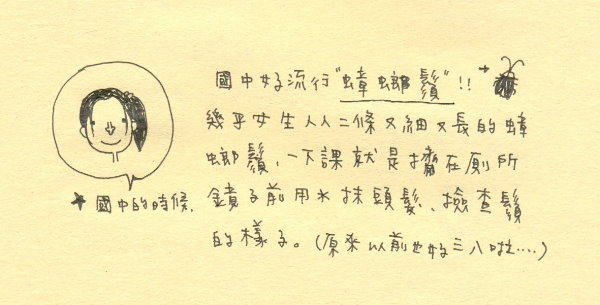 國中好流行"蟑螂鬚"!!
幾乎女生人人二條又細又長的蟑
螂鬚,一下課就是擠在廁所
鏡子前用水抹頭髮、檢查鬚
的樣子。(原來以前也好三八啦....)
國中的時候.